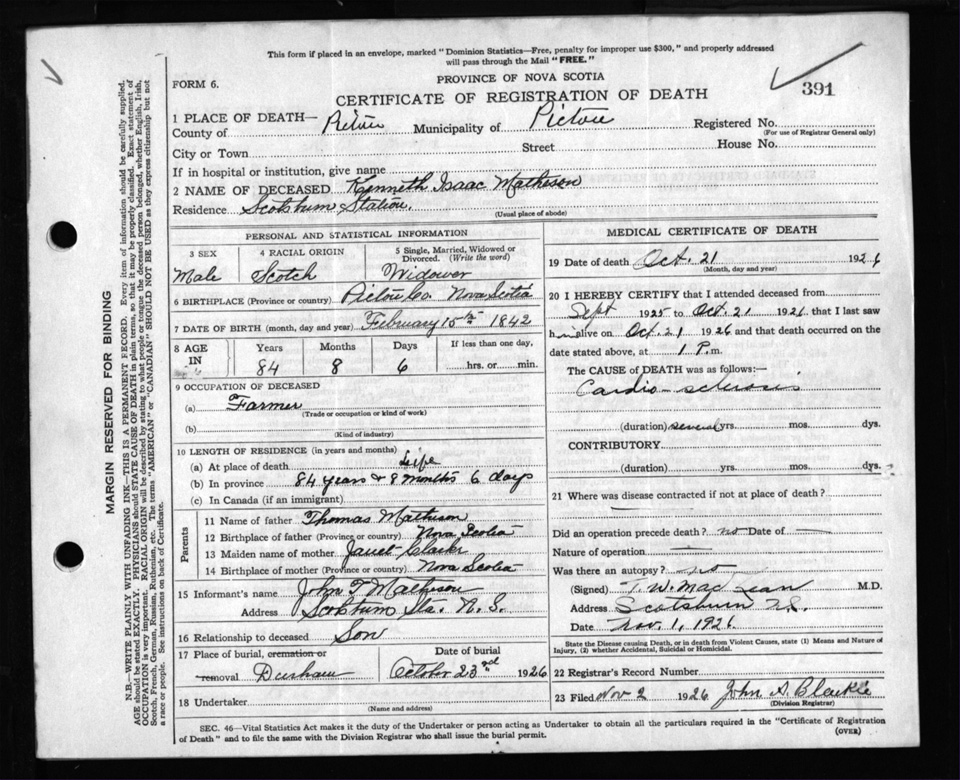 This form if placed in an envelope, marked "Dominion Statistics—Free, penalty for improper use $300," and properly addressed
will pass through the Mail "FREE."
FORM 6.
PROVINCE OF NOVA SCOTIA
391
CERTIFICATE OF REGISTRATION OF DEATH
1 PLACE OF DEATH—
County of Pictou Municipality of Pictou Registered No.
(For use of Registrar General only)
City or Town Street House No.
If in hospital or institution, give name
2 NAME OF DECEASED Kenneth Isaac Matheson
Residence Scotsburn Station.
(Usual place of abode)
PERSONAL AND STATISTICAL INFORMATION
3 SEX 4 RACIAL ORIGIN 5 Single, Married, Widowed or Divorced. (Write the word)
Male Scotch Widower
6 BIRTHPLACE (Province or country) Pictou Co. Nova Scotia
7 DATE OF BIRTH (month, day and year) February 15th 1842
8 AGE IN Years Months Days If less than one day,
84 8 6 hrs. or min.
9 OCCUPATION OF DECEASED
(a) Farmer
(Trade or occupation or kind of work)
(b)
(Kind of industry)
10 LENGTH OF RESIDENCE (in years and months)
(a) At place of death Life
(b) In province 84 years & 8 months 6 days
(c) In Canada (if an immigrant)
Parents
11 Name of father Thomas Matheson
12 Birthplace of father (Province or country) Nova Scotia
13 Maiden name of mother Janet Clark
14 Birthplace of mother (Province or country) Nova Scotia
15 Informant's name John T Matheson
Address Scotsburn Sta. N. S.
16 Relationship to deceased Son
17 Place of burial, cremation or removal Durham Date of burial October 23rd 1926
18 Undertaker
(Name and address)
MEDICAL CERTIFICATE OF DEATH
19 Date of death Oct. 21 1926
(Month, day and year)
20 I HEREBY CERTIFY that I attended deceased from
Sept 1925 to Oct. 21 1926 that I last saw
him alive on Oct. 21 1926 and that death occurred on the
date stated above, at 1 P. m.
The CAUSE OF DEATH was as follows:
Cardio-sclerosis
(duration) several yrs. mos. dys.
CONTRIBUTORY
(duration) yrs. mos. dys.
21 Where was disease contracted if not at place of death?
Did an operation precede death? no Date of
Nature of operation
Was there an autopsy? no
(Signed) T. W. MacLean M.D.
Address Scotsburn N.S.
Date Nov. 1, 1926
State the Disease causing Death, or in death from Violent Causes, state (1) Means and Nature of
Injury, (2) whether Accidental, Suicidal or Homicidal.
22 Registrar's Record Number
23 Filed Nov 2 1926 John A.
(Division Registrar)
SEC. 46—Vital Statistics Act makes it the duty of the Undertaker or person acting as Undertaker to obtain all the particulars required in the "Certificate of Registration
of Death" and to file the same with the Division Registrar who shall issue the burial permit.
(OVER)
MARGIN RESERVED FOR BINDING
N.B.—WRITE PLAINLY WITH UNFADING INK—THIS IS A PERMANENT RECORD. Every item of information should be carefully supplied.
AGE should be stated EXACTLY. PHYSICIANS should STATE CAUSE OF DEATH in plain terms, so that it may be properly classified. Exact statement of
OCCUPATION is very important. RACIAL ORIGIN will be described by stating to what people or tongue the deceased person belonged, whether English, Irish,
Scotch, French, German, Russian, Ruthenian, etc. The terms "AMERICAN" or "CANADIAN" SHOULD NOT BE USED as they express citizenship but not
a race or people. See instructions on back of Certificate.